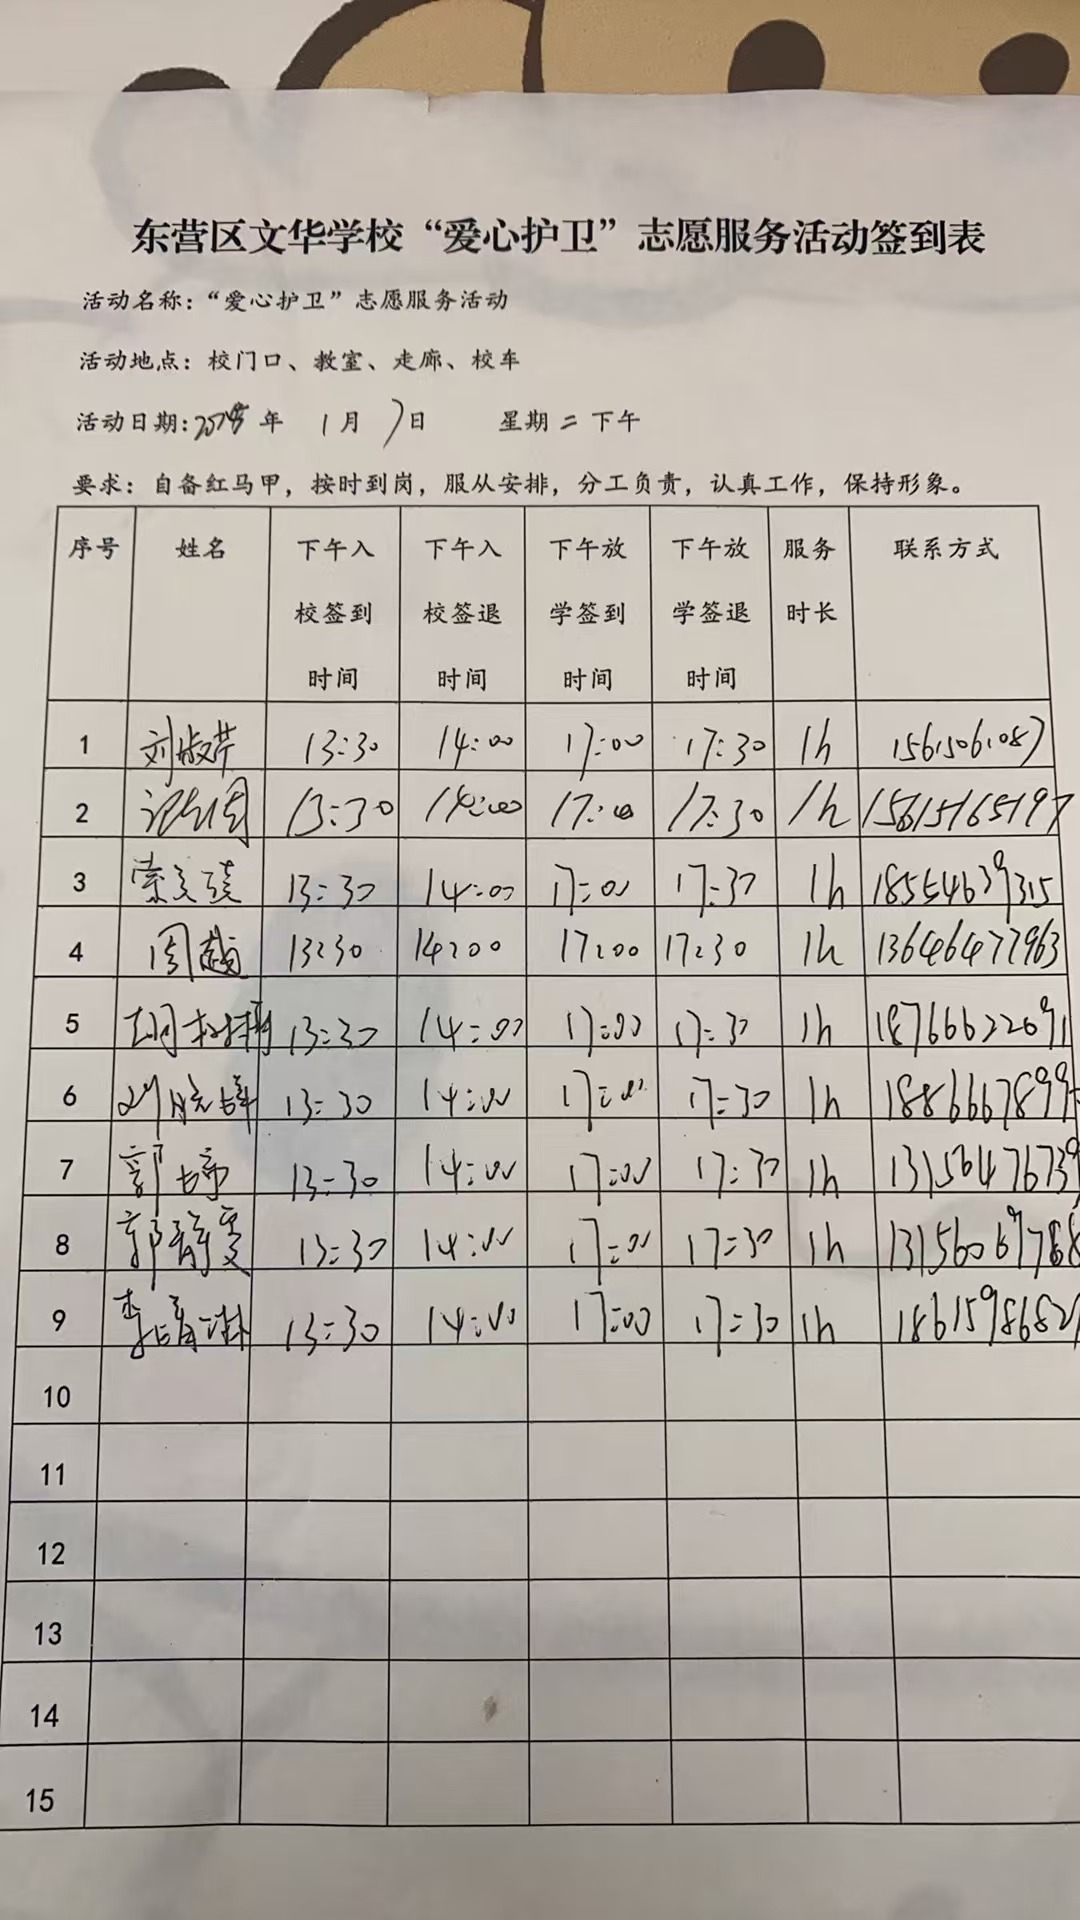 东营区文华学校“爱心护卫”志愿服务活动签到表
活动名称：“爱心护卫”志愿服务活动
活动地点：校门口、教室、走廊、校车
活动日期: 年 1月 7日 星期二下午
要求：自备红马甲，按时到岗，服从安排，分工负责，认真工作，保持形象。
序号 姓名 下午入校签到时间 下午入校签退时间 下午放学签到时间 下午放学签退时间 服务时长 联系方式
1 刘淑芹 13:30 14:00 17:00 17:30 1h 15615061087
2 13:30 14:00 17:00 17:30 1h 15615165197
3 13:30 14:00 17:00 17:30 1h 18554639315
4 周越 13:30 14:00 17:00 17:30 1h 13646477963
5 13:30 14:00 17:00 17:30 1h 18766622691
6 13:30 14:00 17:00 17:30 1h
7 郭婷 13:30 14:00 17:00 17:30 1h 13156476739
8 郭静雯 13:30 14:00 17:00 17:30 1h 13156069788
9 13:30 14:00 17:00 17:30 1h
10
11
12
13
14
15